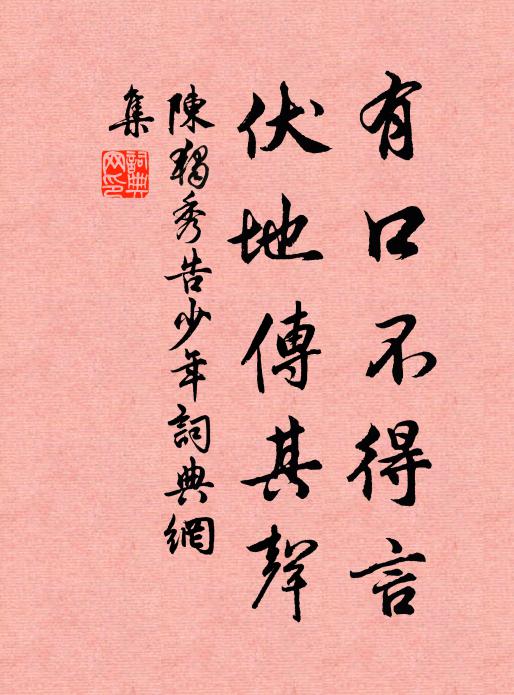 有口不得言
伏地傳其聲
陳獨秀告少年詞典網
集
詞典
网印